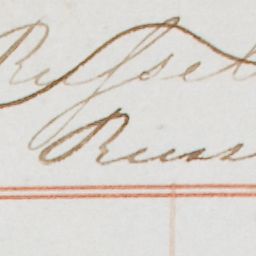 Russel
Russ